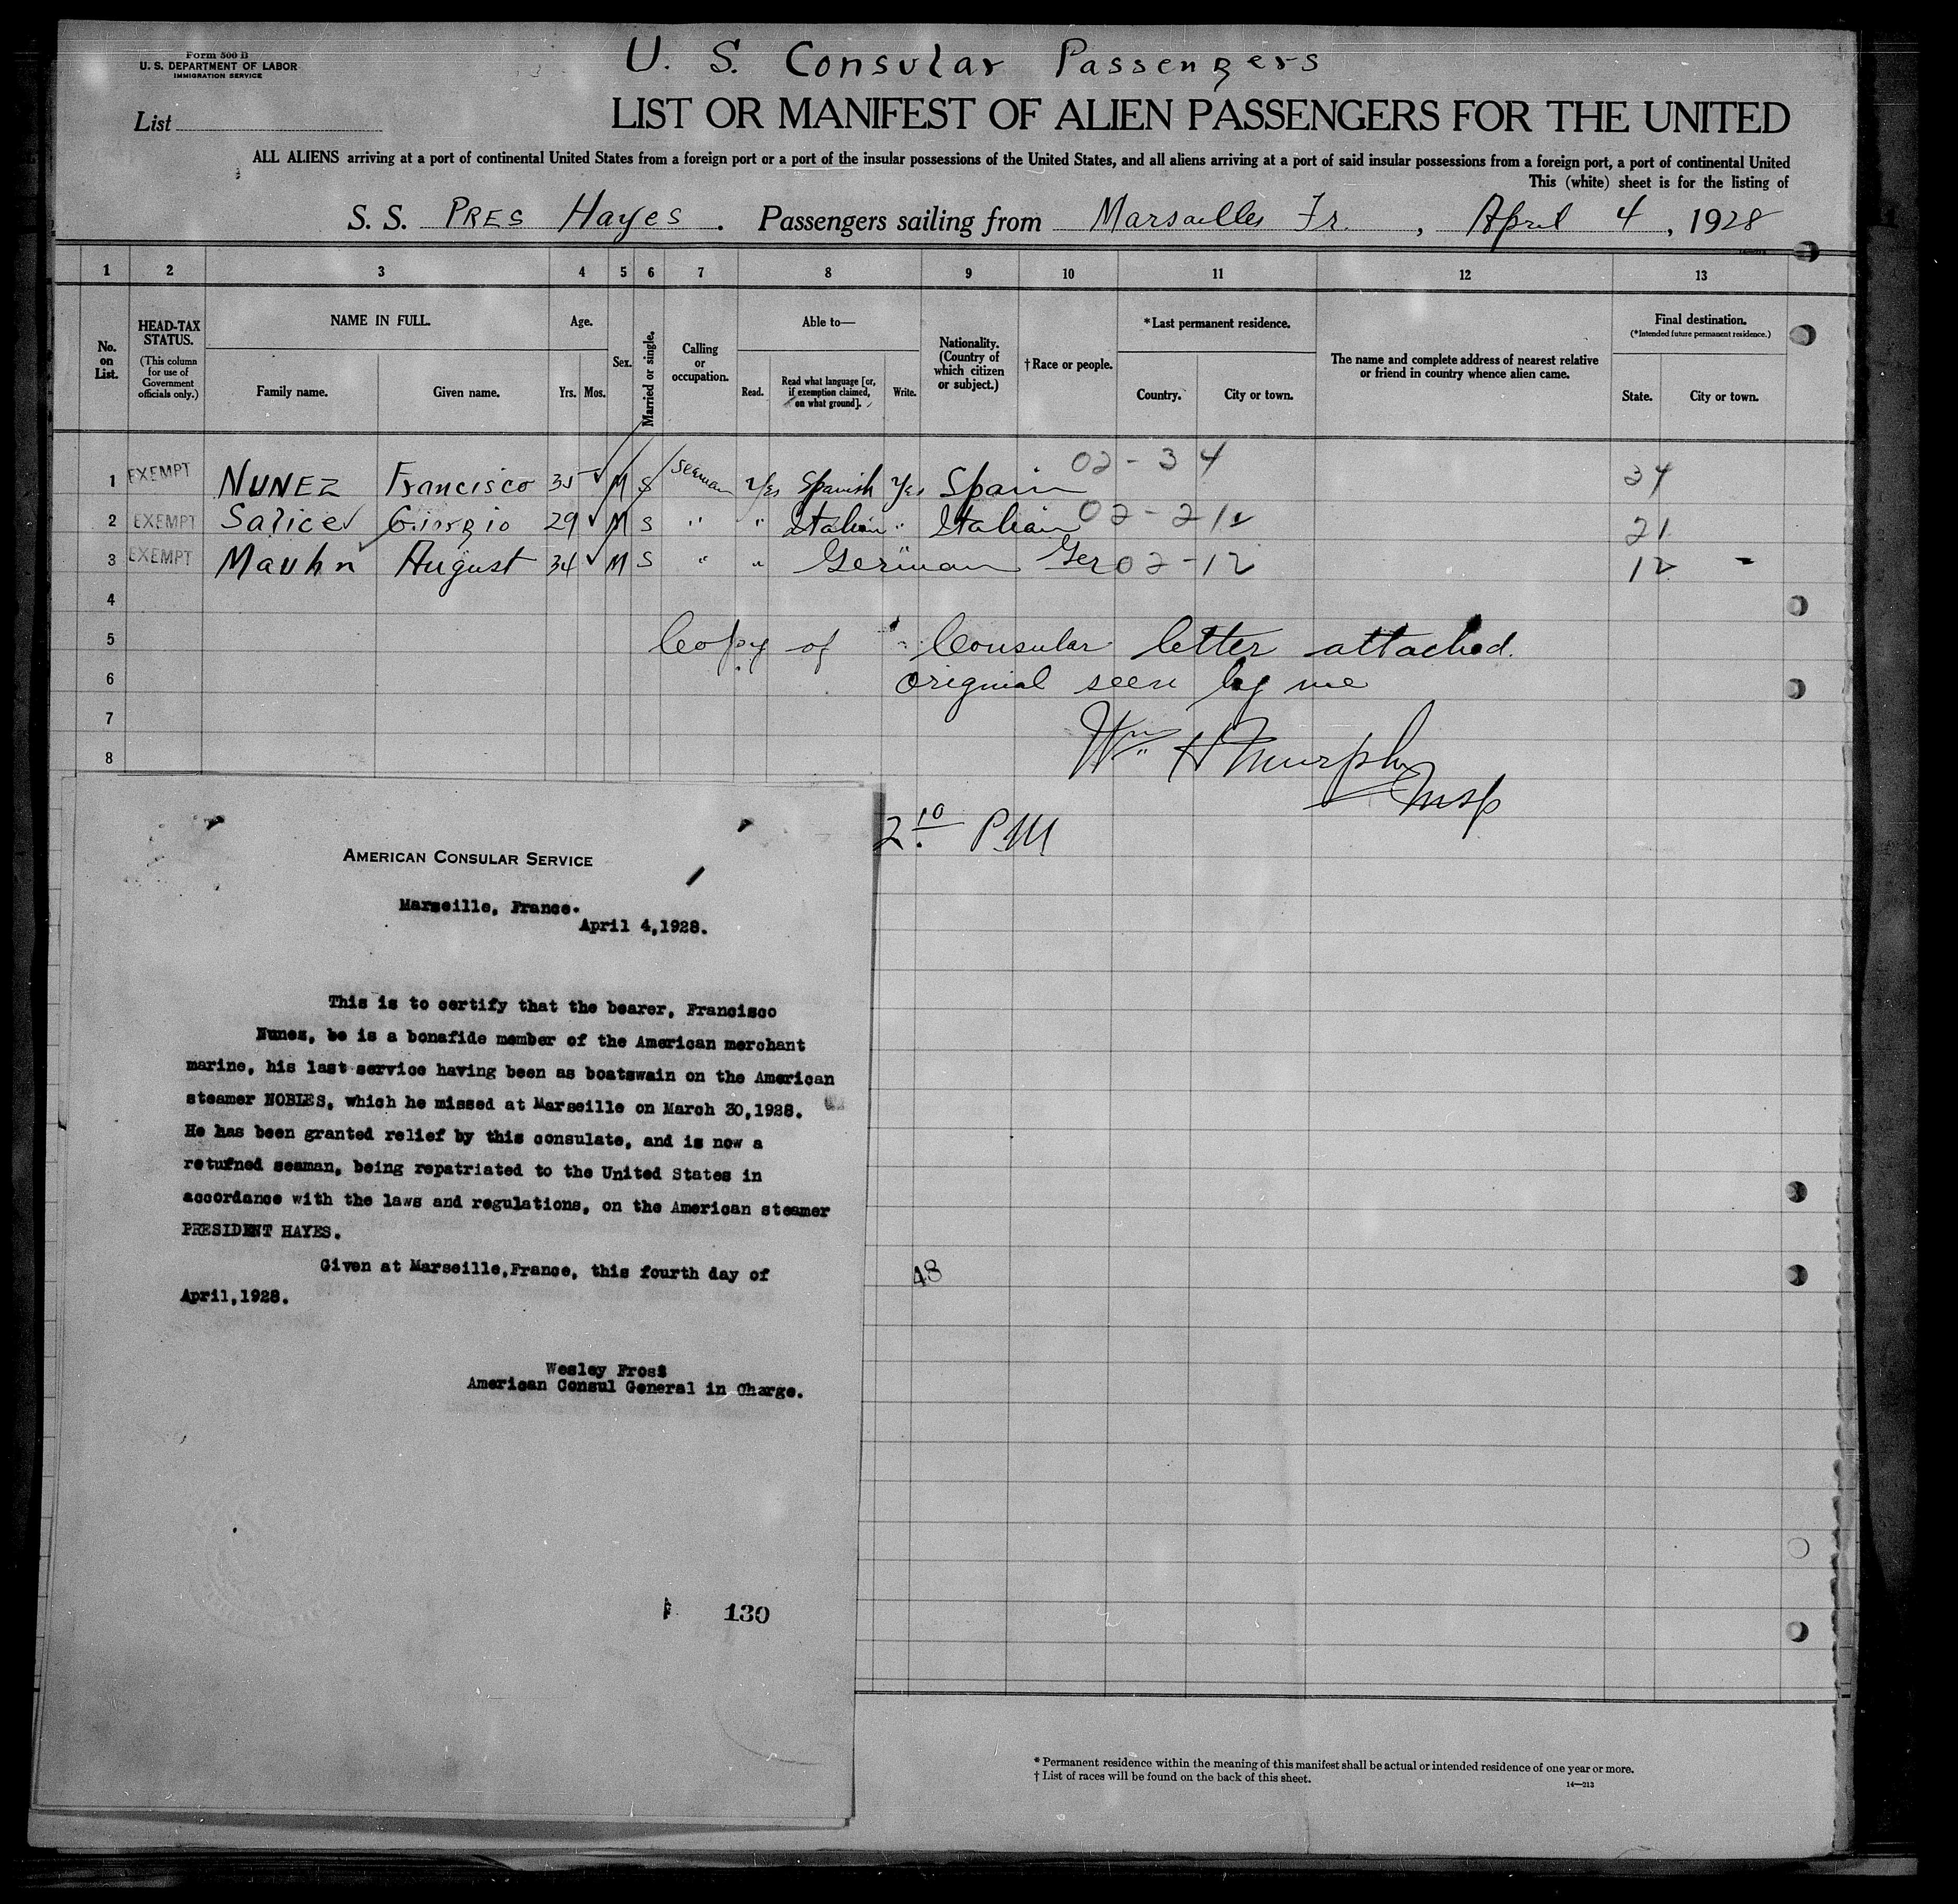 Form 500 B
U. S. DEPARTMENT OF LABOR
IMMIGRATION SERVICE
U. S. Consular Passengers
List
LIST OR MANIFEST OF ALIEN PASSENGERS FOR THE UNITED
ALL ALIENS arriving at a port of continental United States from a foreign port or a port of the insular possessions of the United States, and all aliens arriving at a port of said insular possessions from a foreign port, a port of continental United
This (white) sheet is for the listing of
S. S. PRES Hayes. Passengers sailing from Marsailles Fr., April 4, 1928
1 2 3 4 5 6 7 8 9 10 11 12 13
No. on List.
HEAD-TAX STATUS.
(This column for use of Government officials only.)
NAME IN FULL.
Family name. Given name.
Age.
Yrs. Mos.
Sex.
Married or single.
Calling or occupation.
Able to—
Read. Read what language [or, if exemption claimed, on what ground]. Write.
Nationality. (Country of which citizen or subject.)
†Race or people.
*Last permanent residence.
Country. City or town.
The name and complete address of nearest relative or friend in country whence alien came.
Final destination.
(*Intended future permanent residence.)
State. City or town.
1 EXEMPT NUNEZ Francisco 35 M S Seaman Yes Spanish Yes Spain 02-34 34
2 EXEMPT Salice Giorgio 29 M S " " Italian " Italian 02-21 21
3 EXEMPT Mauhn August 34 M S " " German Ger 02-12 12 -
4
5 Copy of Consular letter attached.
6 original seen by me
7 Wm H Murphy
8 Insp
2 10 PM
AMERICAN CONSULAR SERVICE
Marseille, France.
April 4,1928.
This is to certify that the bearer, Francisco
Nunez, he is a bonafide member of the American merchant
marine, his last service having been as boatswain on the American
steamer NOBLES, which he missed at Marseille on March 30,1928.
He has been granted relief by this consulate, and is now a
returned seaman, being repatriated to the United States in
accordance with the laws and regulations, on the American steamer
PRESIDENT HAYES.
Given at Marseille,France, this fourth day of
April,1928.
48
Wesley Frost
American Consul General in Charge.
130
* Permanent residence within the meaning of this manifest shall be actual or intended residence of one year or more.
† List of races will be found on the back of this sheet.
14—213